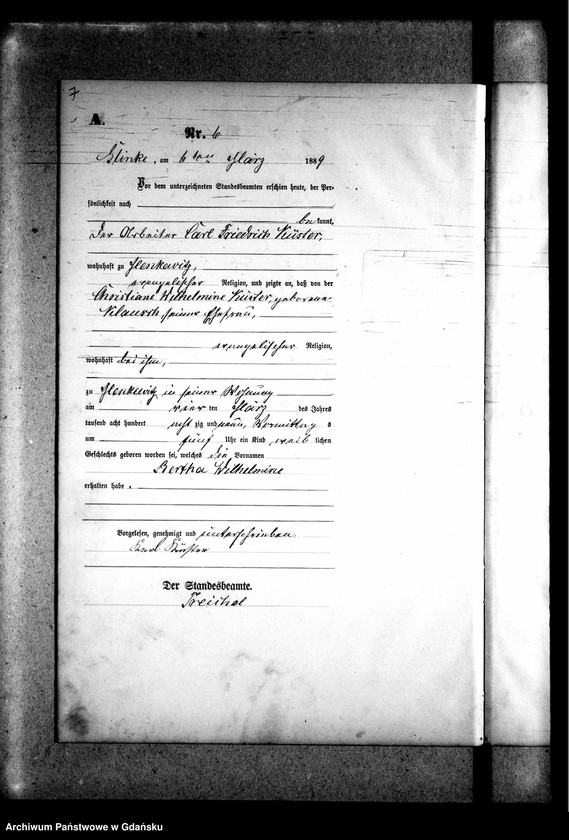 7
A.
Nr. 6
Klinke, am 6ten März 1889
Vor dem unterzeichneten Standesbeamten erschien heute, der Per-
sönlichkeit nach
bekannt,
der Arbeiter Carl Friedrich Küster,
wohnhaft zu
evangelischer Religion, und zeigte an, daß von der
Christiane Wilhelmine Küster, geborene
seiner Ehefrau,
evangelischer Religion,
wohnhaft bei ihm,
zu in seiner Wohnung
am vier ten März des Jahres
tausend acht hundert acht zig und neun, Vormittag s
um fünf Uhr ein Kind weib lichen
Geschlechts geboren worden sei, welches die Vornamen
Bertha Wilhelmine
erhalten habe.
Vorgelesen, genehmigt und unterschrieben.
Karl Küster
Der Standesbeamte.
Treichel
Archiwum Państwowe w Gdańsku